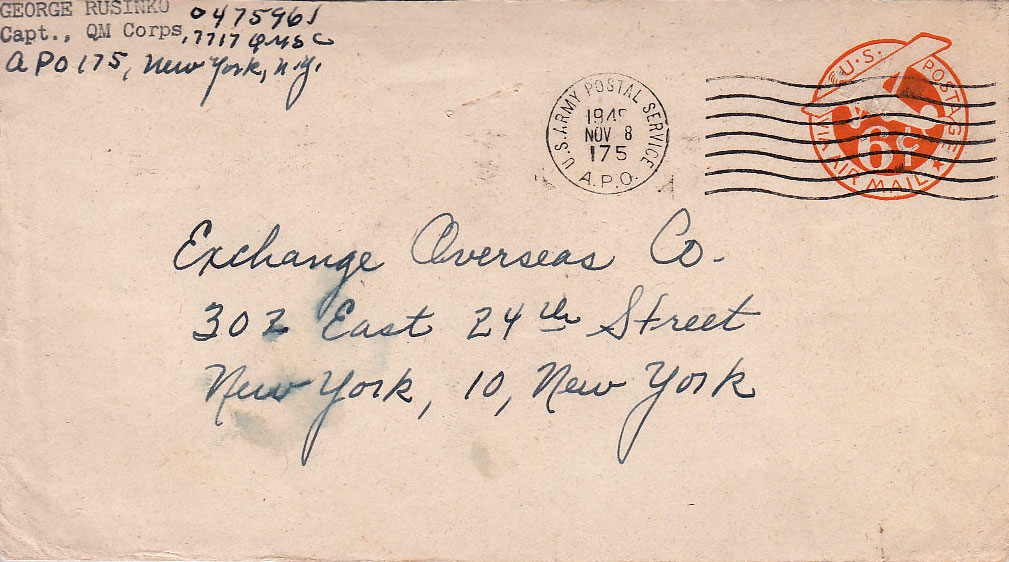 GEORGE RUSINKO 0475961
Capt., QM Corps, 7717 QMSC
APO 175, New York, N.Y.
U.S. ARMY POSTAL SERVICE
NOV 8
175
A.P.O.
U.S. POSTAGE
6¢
VIA AIR MAIL
Exchange Overseas Co.
302 East 24th Street
New York, 10, New York